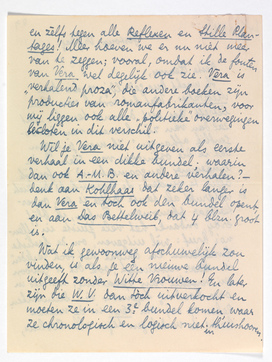 en zelfs tegen alle Reflexen en Stille Plan-
tages! Meer hoeven we er nu niet meer
van te zeggen; vooral, omdat ik de fouten
van Vera wel degelijk ook zie. Vera is
"verhalend proza", die andere boeken zijn
producties van romanfabrikanten; voor
mij liggen ook alle "politieke" overwegingen
besloten in dit verschil.
Wil je Vera niet uitgeven als eerste
verhaal in een dikke bundel, waarin
dan ook A.-M.B. en andere verhalen? –
denk aan Kohlhaas dat zeker langer is
dan Vera en toch ook den bundel opent,
en aan Das Bettelweib, dat 4 blzn. groot
is.
Wat ik gewoonweg afschuwelijk zou
vinden, is als je een nieuwe bundel
uitgeeft zonder Witte Vrouwen! En later
zijn die W.V. dan toch uitverkocht en
moeten ze in een 3e bundel komen waar
ze chronologisch en logisch niet in thuishooren